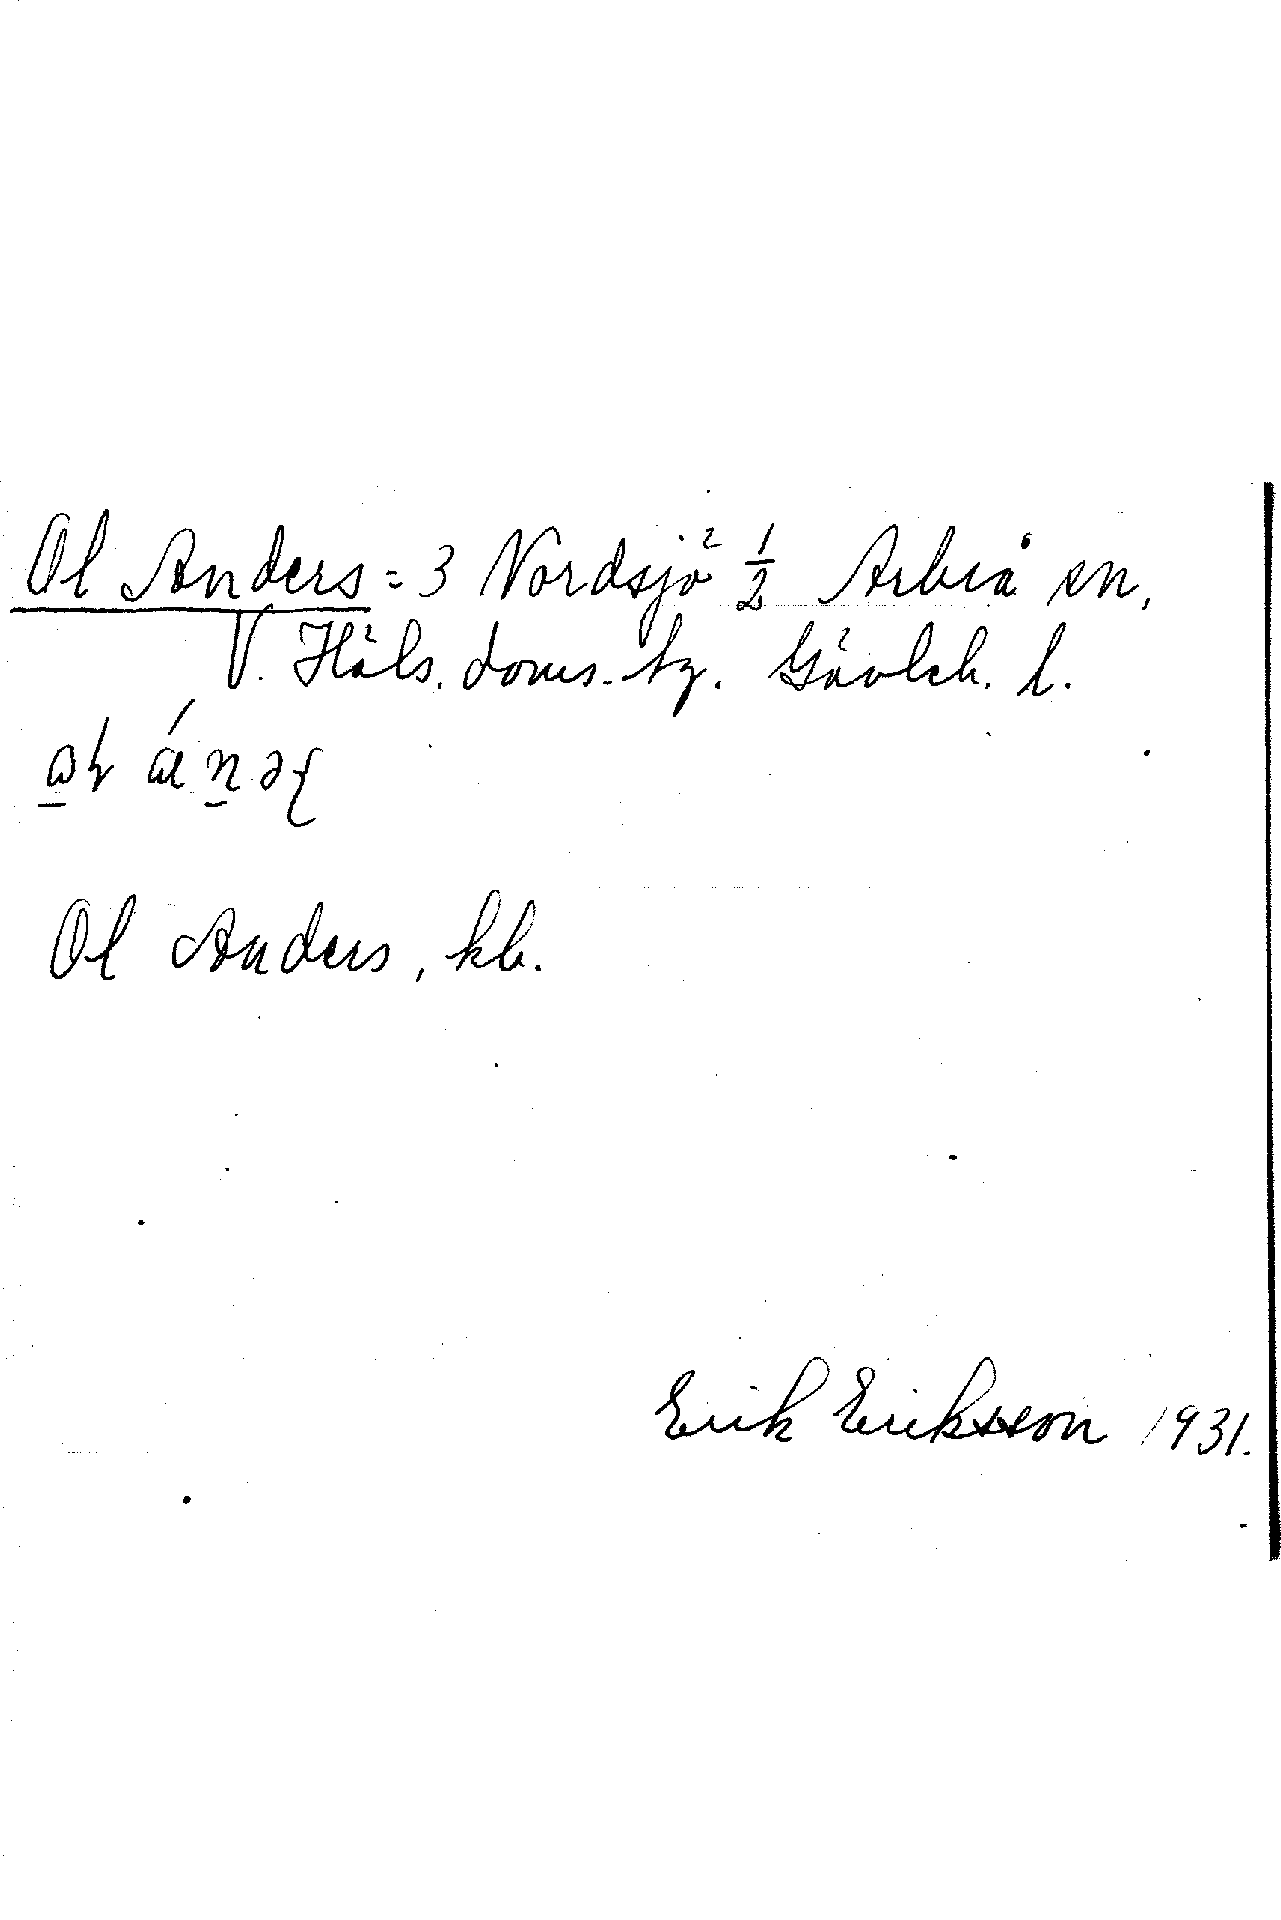 Ol Anders = 3 Nordsjö ½ Arbrå sn,
V. Häls. doms. tg. Gävleb. l.
Ol Anders, kb.
Erik Eriksson 1931.